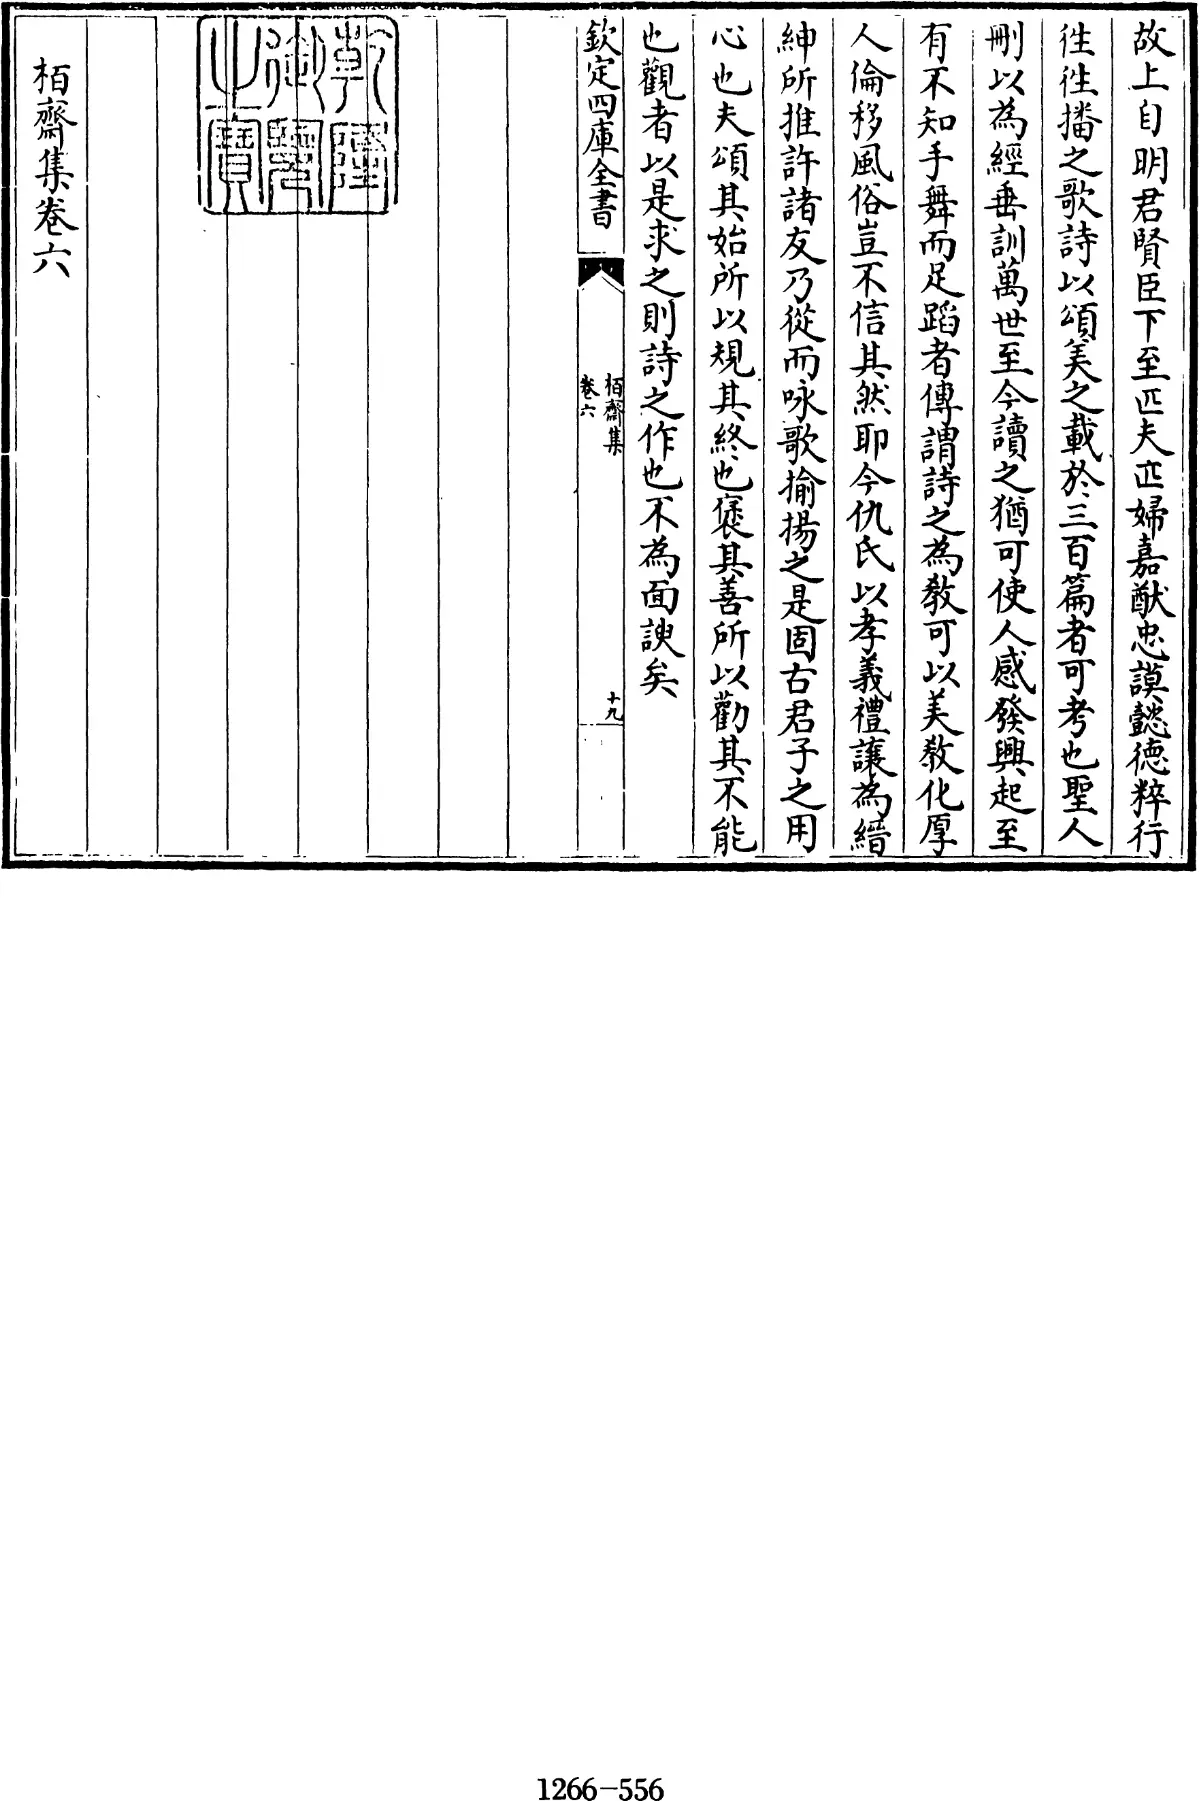 故上自明君賢臣下至匹夫匹婦嘉猷忠謨懿德粹行
徃徃播之歌詩以頌美之載於三百篇者可考也聖人
刪以為經垂訓萬世至今讀之猶可使人感發興起至
有不知手舞而足蹈者傳謂詩之為教可以美敎化厚
人倫移風俗豈不信其然耶今仇氏以孝義禮讓為縉
紳所推許諸友乃從而咏歌揄揚之是固古君子之用
心也夫頌其始所以規其終也褒其善所以勸其不能
也觀者以是求之則詩之作也不為面諛矣
欽定四庫全書
栢齋集
卷六
十九
乾隆御覽之寶
栢齋集卷六
1266-556